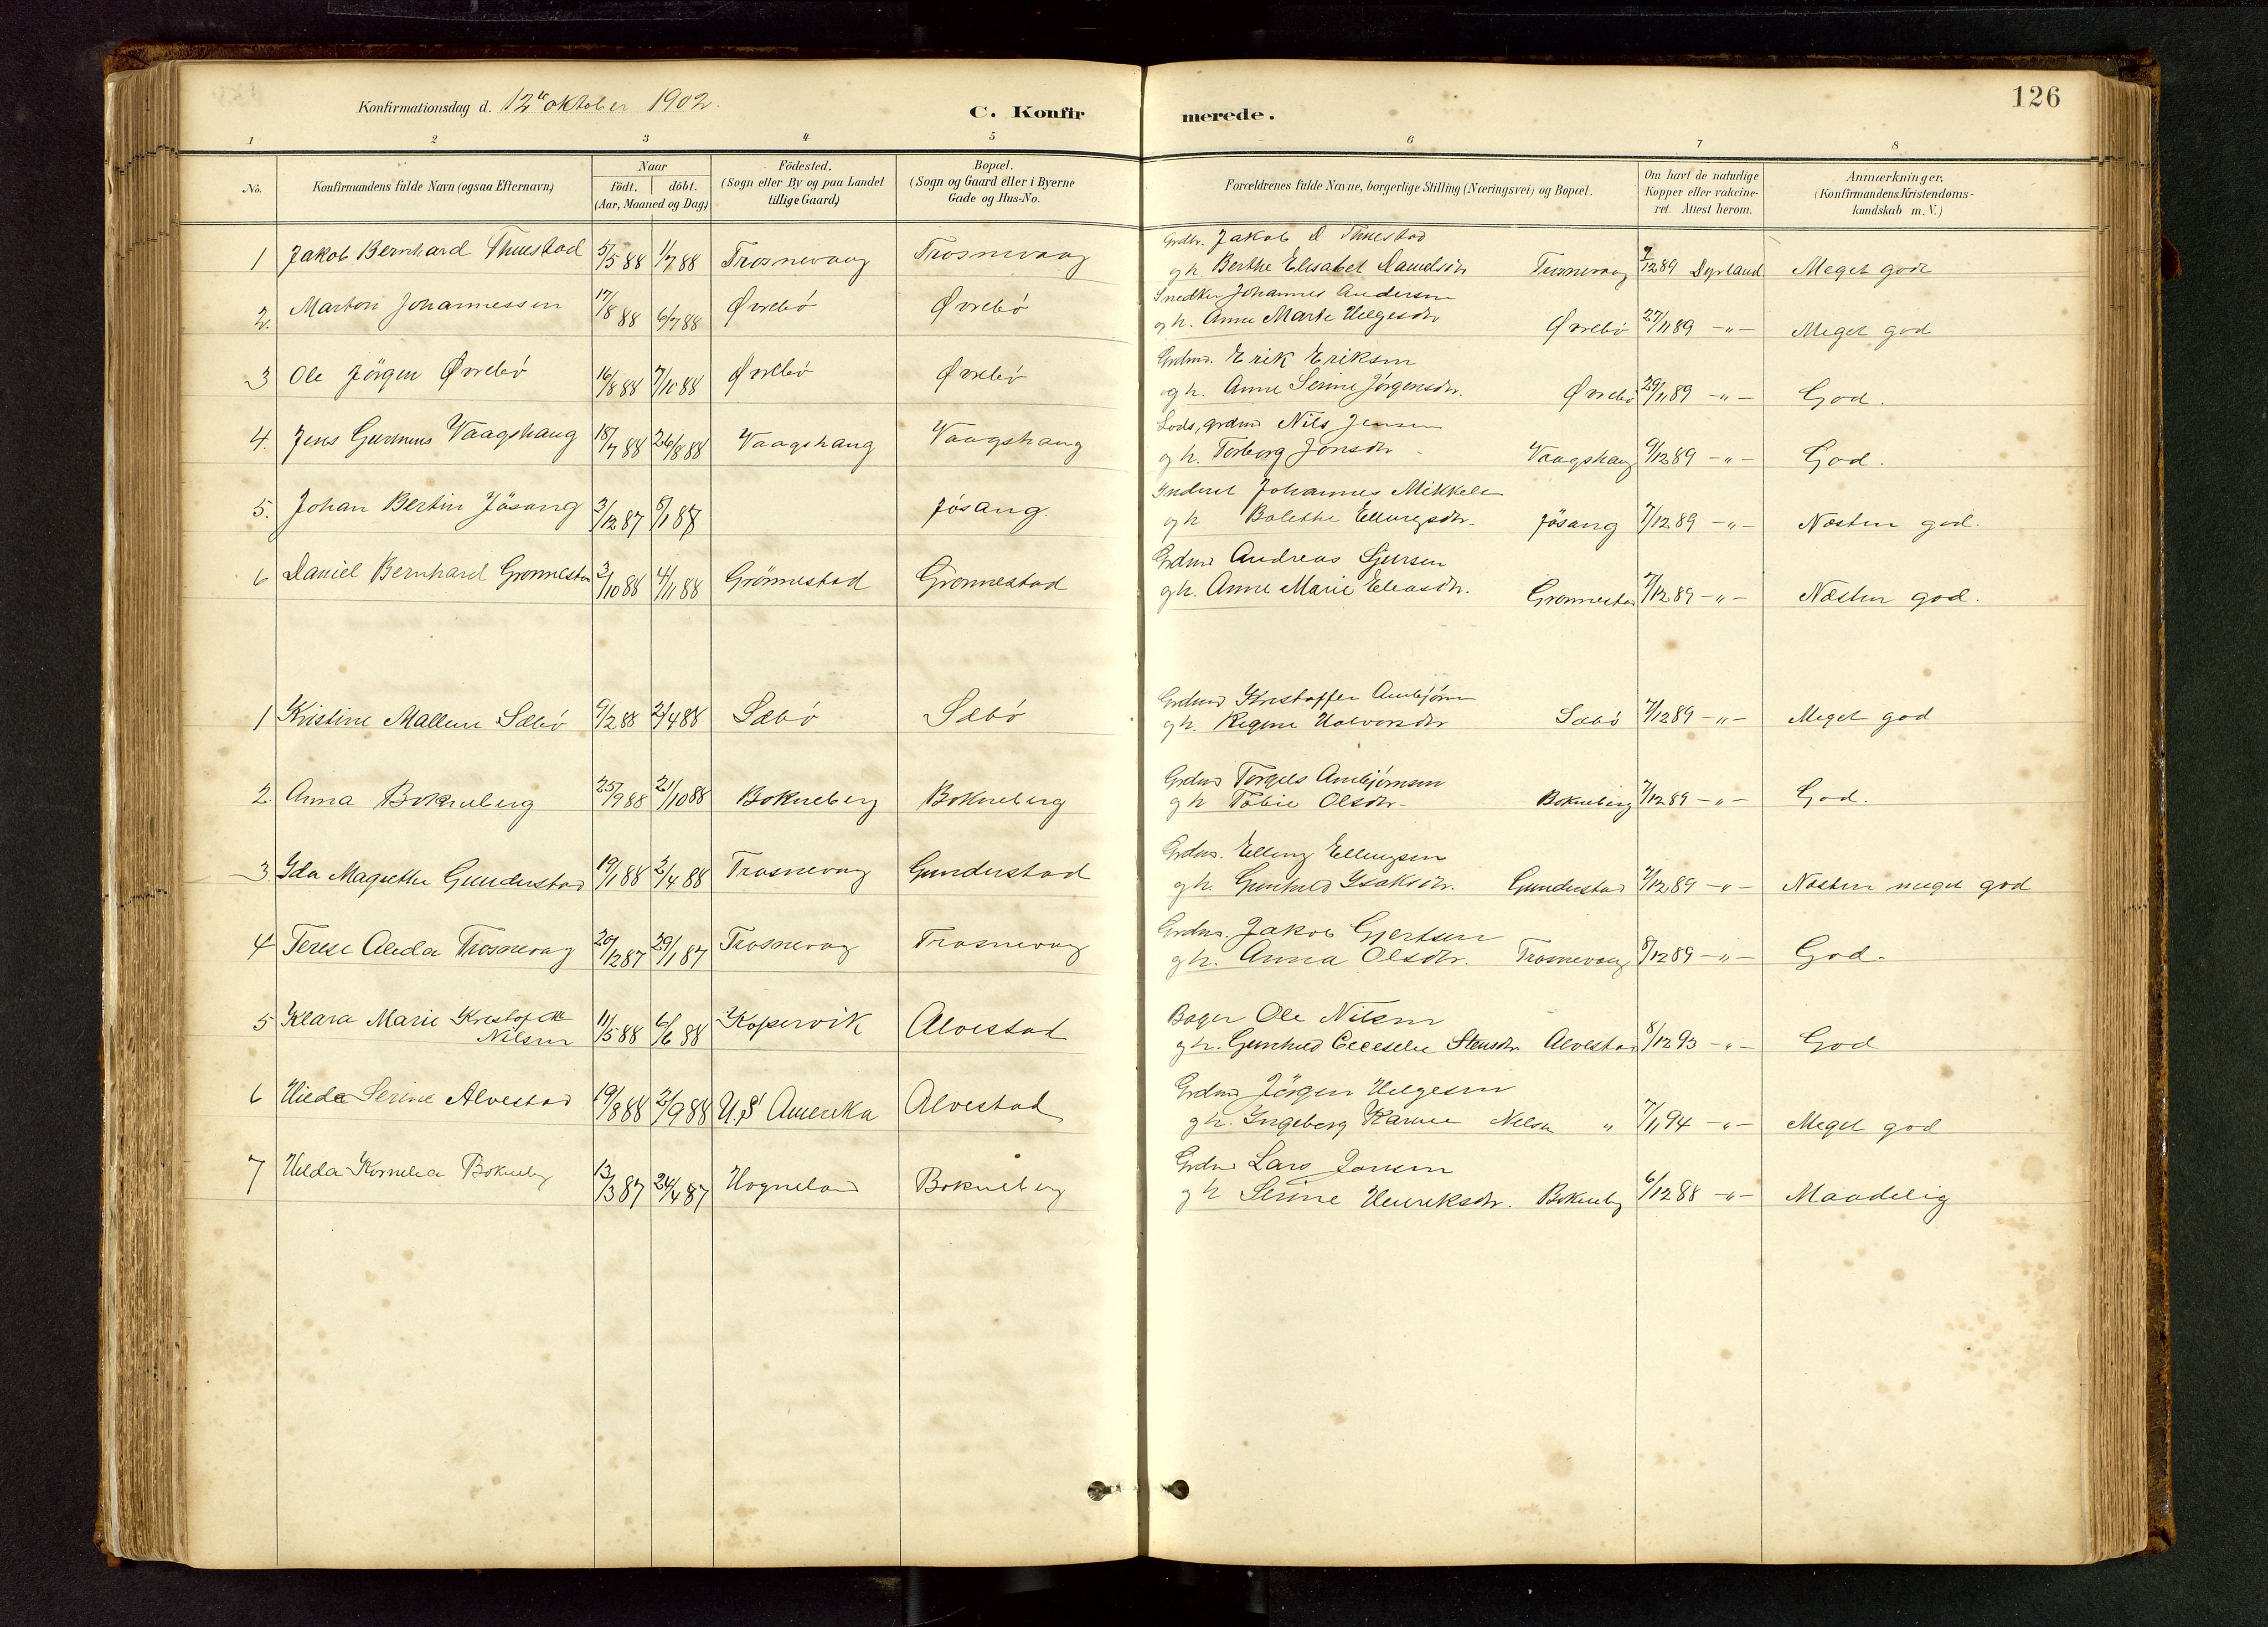 126
Konfirmationsdag d. 12te oktober 1902.
C. Konfirmerede.
1 2 3 4 5 6 7 8
No.
Konfirmandens fulde Navn (ogsaa Efternavn)
Naar
födt. döbt.
(Aar, Maaned og Dag)
Födested.
(Sogn eller By og paa Landet
tillige Gaard)
Bopæl.
(Sogn og Gaard eller i Byerne
Gade og Hus-No.
Forældrenes fulde Navne, borgerlige Stilling (Næringsvei) og Bopæl.
Om havt de naturlige
Kopper eller vakcine-
ret. Attest herom.
Anmærkninger,
(Konfirmandens Kristendoms-
kundskab m. V.)
Grdbr. Jakob D Thuestad
1 Jakob Bernhard Thuestad 5/5 88 1/7 88 Trosnevaag Trosnevaag
og h. Berthe Elisabet Danielsdtr Trosnevaag 7/12 89 Dyrland Meget god
Snedker Johannes Andersen
2. Marton Johannessen 17/8 88 6/7 88 Øvrebö Øvrebö
og h. Anne Marte Helgesdtr Øvrebö 27/11 89 -"- Meget god
Grdmd. Erik Eriksen
3 Ole Jörgen Øvrebö 16/8 88 7/10 88 Øvrebö Øvrebö
og h. Anne Serine Jörgensdtr. Øvrebö 29/11 89 -"- God.
Lods, grdmd Nils Jensen
4. Jens Vaagshaug 18/7 88 26/8 88 Vaagshaug Vaagshaug
og h. Torborg Jonsdtr Vaagshaug 9/12 89 -"- God.
Inderst Johannes Mikkels
5. Johan Bertin Jösang 3/12 87 8/1 87 Jösang.
og h Bolethe Ellingsdtr. Jösang 7/12 89 -"- Næsten god.
Grdmd Andreas Sjursen
6 Daniel Bernhard Grønnestad 3/10 88 4/11 88 Grönnestad Grönnestad
og h. Anne Marie Eliasdtr. Grønnestad 7/12 89 -"- Næsten god.
Grdmd Kristoffer
1 Kristine Malline Sæbö 9/2 88 2/4 88 Sæbö Sæbö
og h. Regine Halvorsdtr Sæbö 7/12 89 -"- Meget god
Grdmd Torgils Ambjörnsen
2. Anna Bokneberg 25/9 88 21/10 88 Bokneberg Bokneberg
og h Tobie Olsdtr. Bokneberg 7/12 89 -"- God.
Grdmd. Elling Ellingsen
3. Ida Magrethe Gunderstad 19/1 88 2/4 88 Trosnevag Gunderstad
og h. Gunhild Isaksdtr. Gunderstad 7/12 89 -"- Næsten meget god
Grdmd. Jakob Gjertsen
4 Terese Alida Trosnevag 20/12 87 29/1 87 Trosnevag Trosnevag
og h. Anna Olsdtr. Trosnevaag 8/12 89 -"- God.
Bager Ole Nilsen
5 Klara Marie
Nilsen 11/5 88 6/6 88 Kopervik Alvestad
og h. Gunhild Stensdtr. Alvestad 8/12 93 -"- God
Grdmd Jörgen Helgesen
6 Hilda Serine Alvestad 19/8 88 2/9 88 U.S Amerika Alvestad
og h. Ingeborg Karine Nilsen " 7/11 94 -"- Meget god
Grdmd Lars Jansen
7 Hilda Kornelia Bokneberg 13/3 87 24/4 87 Hogneland Bokneberg
og h Serine Henriksdtr. Bokneberg 6/12 88 -"- Maadelig